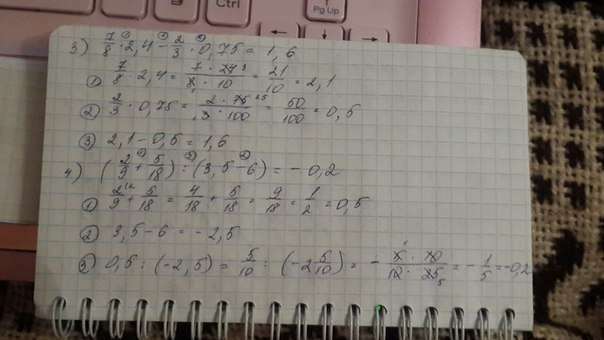 Ctrl
Pg Up
3) 7/8 · 2,4 − 2/3 · 0,75 = 1,6
① 7/8 · 2,4 = 7 · 24 3 / 8 · 10 = 21/10 = 2,1
② 2/3 · 0,75 = 2 · 75 25 / 3 · 100 = 50/100 = 0,5
③ 2,1 − 0,5 = 1,6
4) (2/9 + 5/18) : (3,5 − 6) = − 0,2
① 2/9 + 5/18 = 4/18 + 5/18 = 9/18 = 1/2 = 0,5
② 3,5 − 6 = − 2,5
③ 0,5 : (−2,5) = 5/10 : (−2 5/10) = − 5 · 10 / 10 · 25 5 = − 1/5 = −0,2